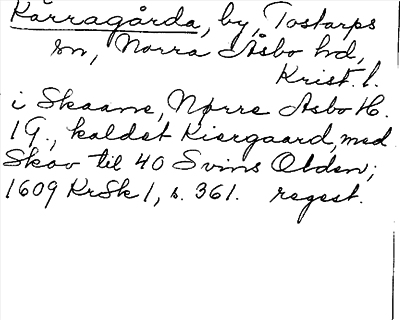 Kärragårda, by, Tostarps
sn, Norra Åsbo hd,
Krist. l.
i Skaane, Nørre Asbo H.
1 G., kaldet Kiergaard, med
Skov til 40 Svins Olden;
1609 KrSk 1, s. 361. regest.